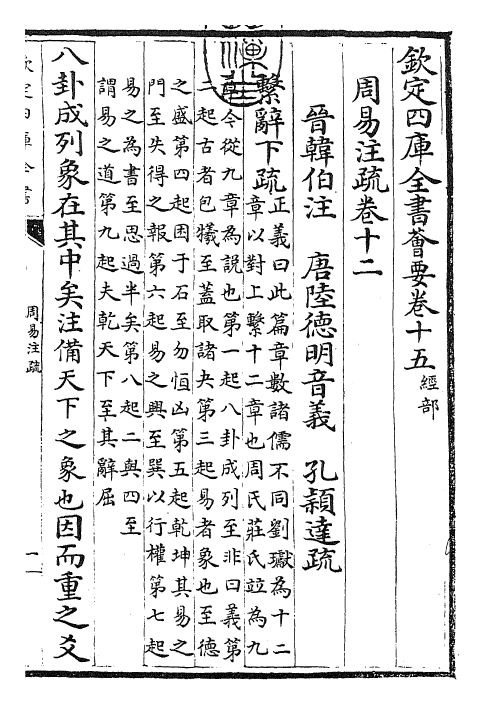 欽定四庫全書薈要卷十五 經部
周易注疏卷十二
晉韓伯注 唐陸德明音義 孔穎達疏
繫辭下疏
正義曰此篇章數諸儒不同劉瓛為十二
章以對上繫十二章也周氏莊氏竝為九
章今從九章為說也第一起八卦成列至非曰義第
二起古者包犧至蓋取諸夬第三起易者象也至德
之盛第四起困于石至勿恒凶第五起乾坤其易之
門至失得之報第六起易之興至巽以行權第七起
易之為書至思過半矣第八起二與四至
謂易之道第九起夫乾天下至其辭屈
八卦成列象在其中矣注備天下之象也因而重之爻
欽定四庫全書
周易注疏
一